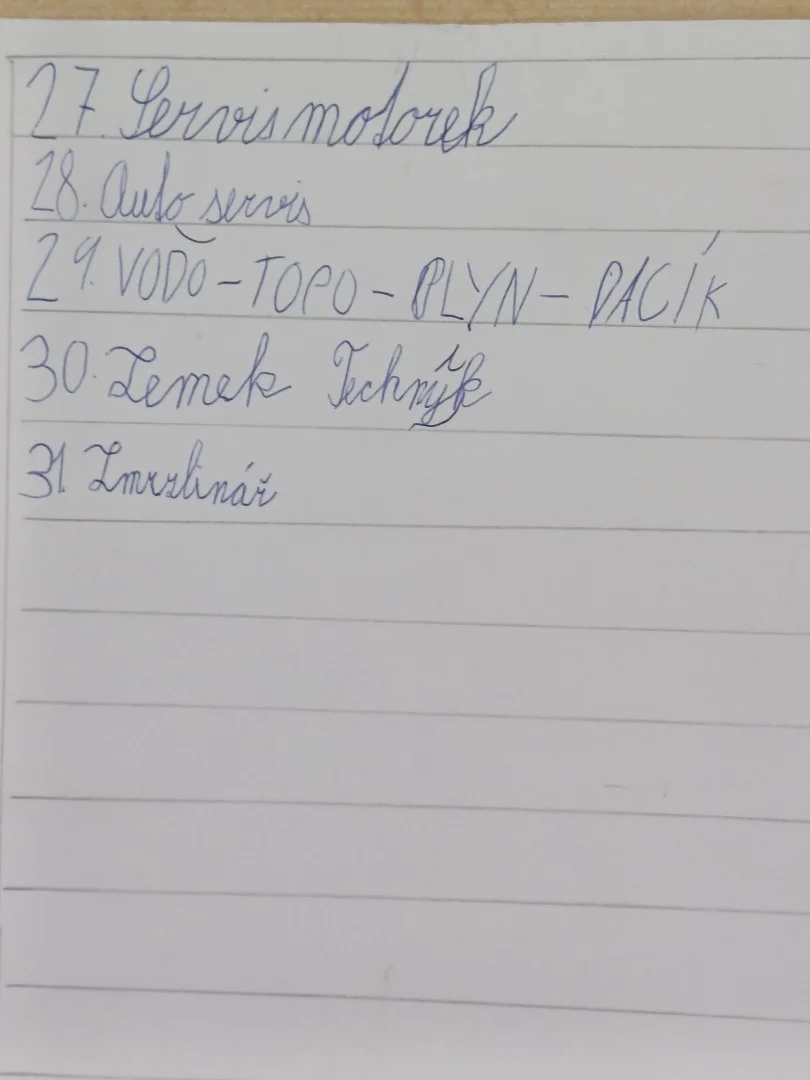 27. Servis motorek
28. Auto servis
29. VODO-TOPO-PLYN-PACÍK
30. Zemek Technik
31 Zmrzlinář